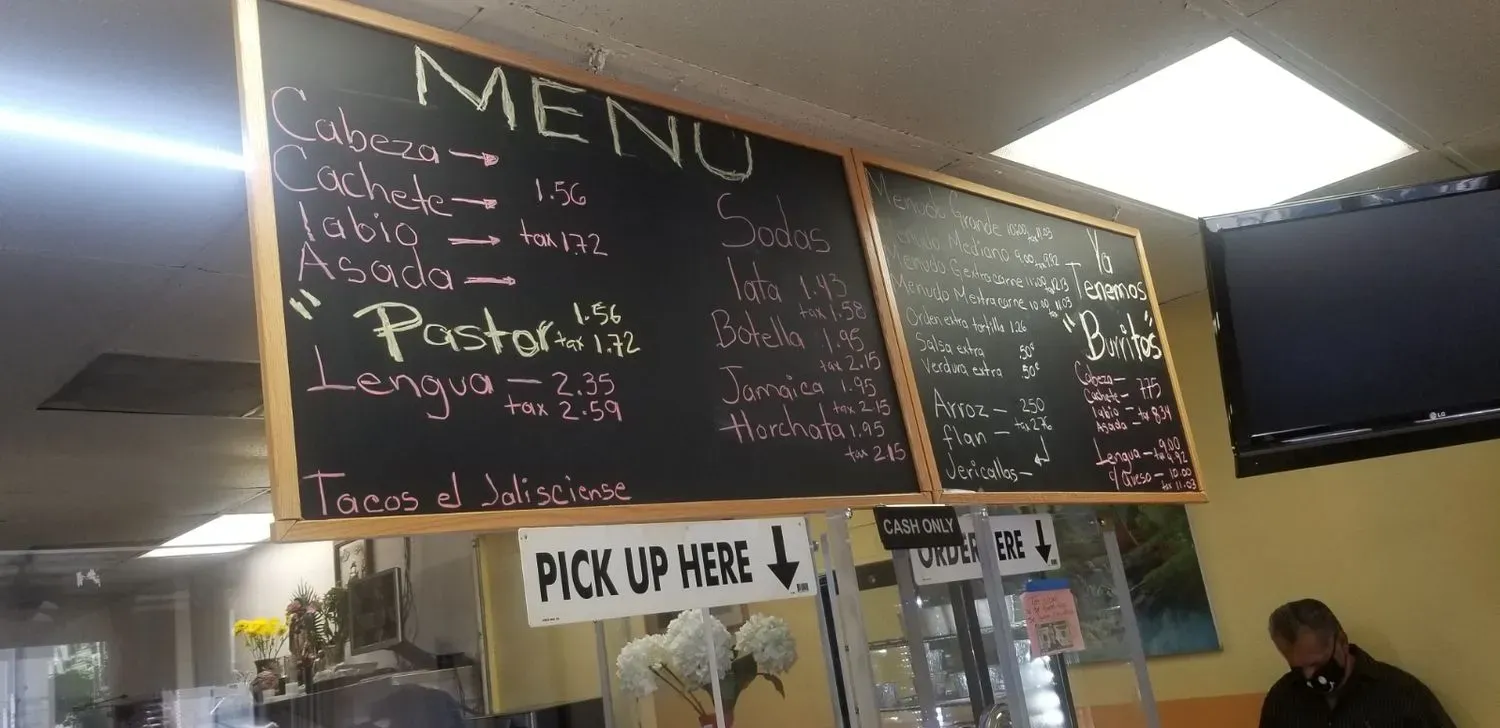 MENU
Cabeza →
Cachete → 1.56
labio → tax 1.72
Asada →
"Pastor 1.56
tax 1.72
Lengua — 2.35
tax 2.59
Tacos el Jalisciense
Sodas
lata 1.43
tax 1.58
Botella 1.95
tax 2.15
Jamaica 1.95
tax 2.15
Horchata 1.95
tax 2.15
Menudo Grande 10.00 tax 11.03
Menudo Mediano 9.00 tax 9.92
Menudo G extra carne 11.00
Menudo M extra carne 10.00 tax 11.03
Orden extra tortilla 1.26
Salsa extra 50¢
Verdura extra .50¢
Arroz — 250
flan — tax 276
Jericallas —
Ya
Tenemos
"Burritos"
Cabeza —
Cachete — 775
labio —
Asada — tax 8.34
Lengua — 9.00
tax 9.92
10.00
tax 11.03
PICK UP HERE ↓
CASH ONLY
ORDER HERE ↓
LG